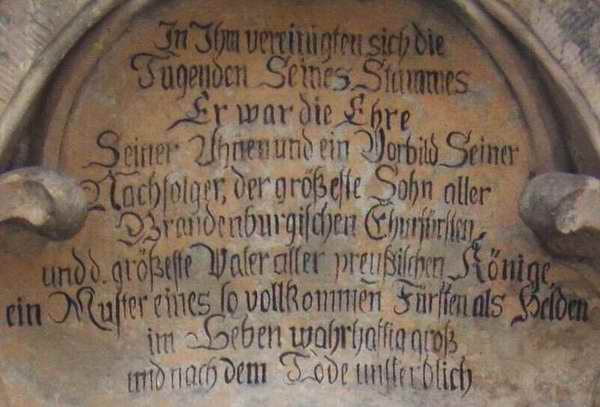 In Ihm vereinigten sich die
Tugenden Seines Stammes
Er war die Ehre
Seiner Ahnen und ein Vorbild Seiner
Nachfolger, der größeste Sohn aller
Brandenburgischen Churfürsten,
und d. größeste Vater aller preußischen Könige,
ein Muster eines so vollkommen Fürsten als Helden
im Leben wahrhaftig groß
und nach dem Tode unsterblich